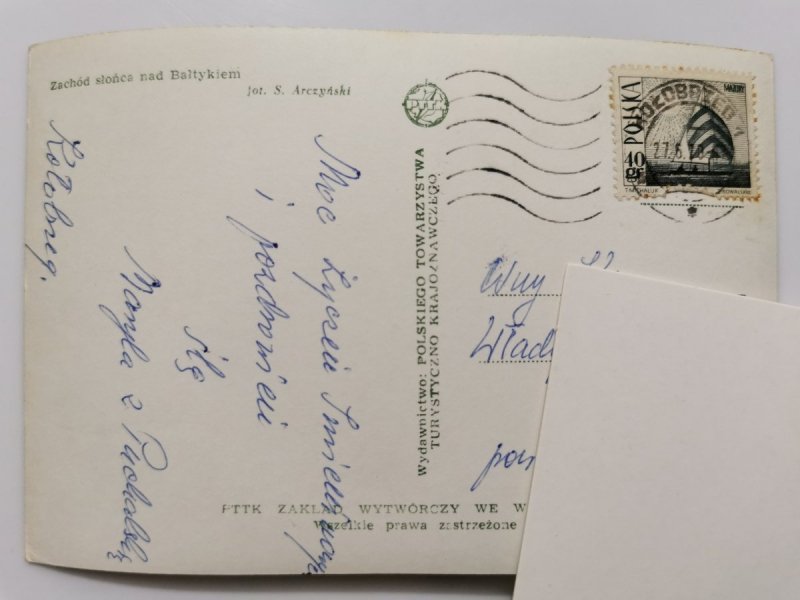 Zachód słońca nad Bałtykiem
fot. S. Arczyński
Kołobrzeg,
Moc Życzeń Imieninowych
i pozdrowień
śle
Maryla z Puchalską
PTTK
Wydawnictwo: POLSKIEGO TOWARZYSTWA
TURYSTYCZNO KRAJOZNAWCZEGO
PTTK ZAKŁAD WYTWÓRCZY WE W
Wszelkie prawa zastrzeżone
POLSKA
MAZURY
40 gr
T. MICHALUK
KOŁOBRZEG 1
Wny
Wład